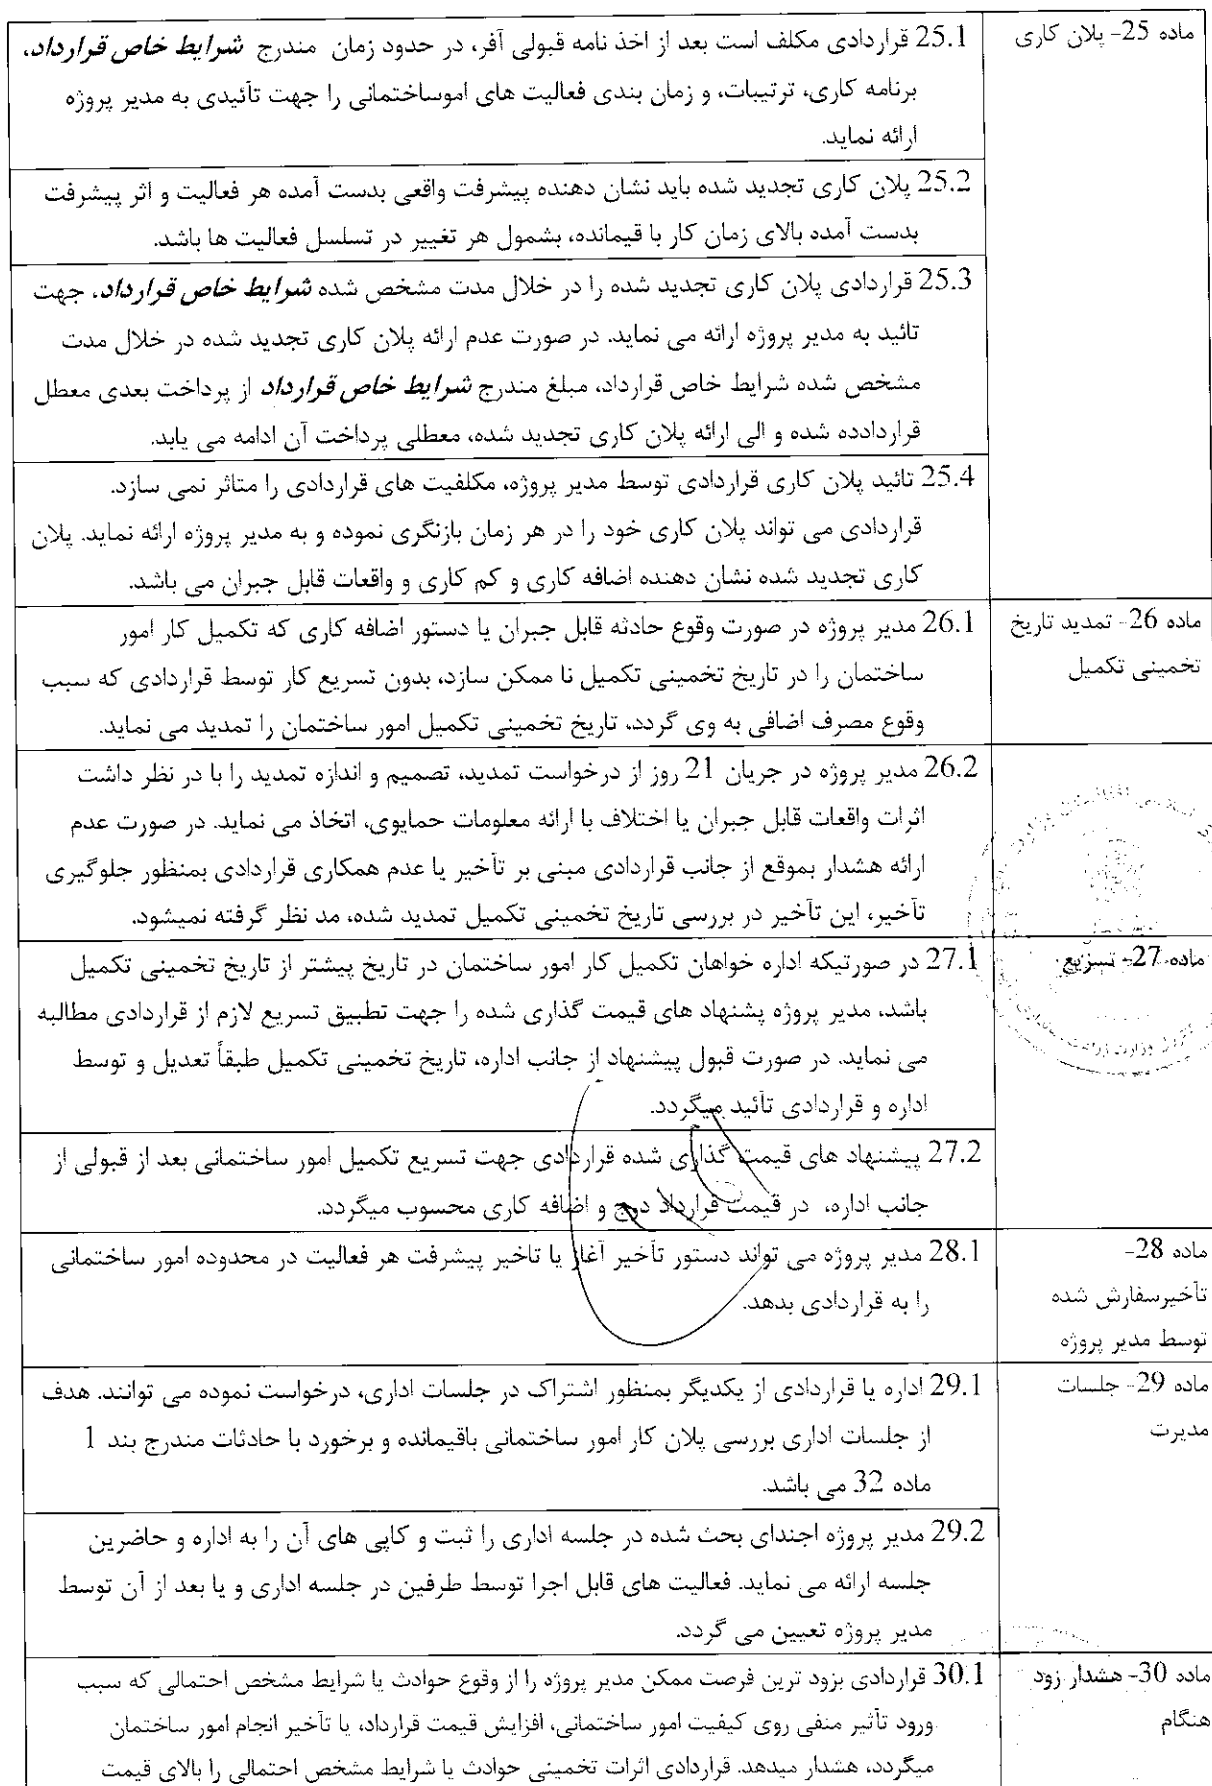 ماده 25- پلان کاری
25.1 قراردادی مکلف است بعد از اخذ نامه قبولی آفر، در حدود زمان مندرج شرایط خاص قرارداد،
برنامه کاری، ترتیبات، و زمان بندی فعالیت های اموساختمانی را جهت تأئیدی به مدیر پروژه
ارائه نماید.
25.2 پلان کاری تجدید شده باید نشان دهنده پیشرفت واقعی بدست آمده هر فعالیت و اثر پیشرفت
بدست آمده بالای زمان کار با قیمانده، بشمول هر تغییر در تسلسل فعالیت ها باشد.
25.3 قراردادی پلان کاری تجدید شده را در خلال مدت مشخص شده شرایط خاص قرارداد، جهت
تائید به مدیر پروژه ارائه می نماید. در صورت عدم ارائه پلان کاری تجدید شده در خلال مدت
مشخص شده شرایط خاص قرارداد، مبلغ مندرج شرایط خاص قرارداد از پرداخت بعدی معطل
قراردادده شده و الی ارائه پلان کاری تجدید شده، معطلی پرداخت آن ادامه می یابد.
25.4 تائید پلان کاری قراردادی توسط مدیر پروژه، مکلفیت های قراردادی را متاثر نمی سازد.
قراردادی می تواند پلان کاری خود را در هر زمان بازنگری نموده و به مدیر پروژه ارائه نماید. پلان
کاری تجدید شده نشان دهنده اضافه کاری و کم کاری و واقعات قابل جبران می باشد.
ماده 26- تمدید تاریخ
تخمینی تکمیل
26.1 مدیر پروژه در صورت وقوع حادثه قابل جبران یا دستور اضافه کاری که تکمیل کار امور
ساختمان را در تاریخ تخمینی تکمیل نا ممکن سازد، بدون تسریع کار توسط قراردادی که سبب
وقوع مصرف اضافی به وی گردد، تاریخ تخمینی تکمیل امور ساختمان را تمدید می نماید.
26.2 مدیر پروژه در جریان 21 روز از درخواست تمدید، تصمیم و اندازه تمدید را با در نظر داشت
اثرات واقعات قابل جبران یا اختلاف با ارائه معلومات حمایوی، اتخاذ می نماید. در صورت عدم
ارائه هشدار بموقع از جانب قراردادی مبنی بر تأخیر یا عدم همکاری قراردادی بمنظور جلوگیری
تأخیر، این تأخیر در بررسی تاریخ تخمینی تکمیل تمدید شده، مد نظر گرفته نمیشود.
ماده 27- تسریع
27.1 در صورتیکه اداره خواهان تکمیل کار امور ساختمان در تاریخ پیشتر از تاریخ تخمینی تکمیل
باشد، مدیر پروژه پشنهاد های قیمت گذاری شده را جهت تطبیق تسریع لازم از قراردادی مطالبه
می نماید. در صورت قبول پیشنهاد از جانب اداره، تاریخ تخمینی تکمیل طبقاً تعدیل و توسط
اداره و قراردادی تأئید میگردد.
27.2 پیشنهاد های قیمت گذاری شده قراردادی جهت تسریع تکمیل امور ساختمانی بعد از قبولی از
جانب اداره، در قیمت قرارداد درج و اضافه کاری محسوب میگردد.
ماده 28-
تأخیرسفارش شده
توسط مدیر پروژه
28.1 مدیر پروژه می تواند دستور تأخیر آغاز یا تاخیر پیشرفت هر فعالیت در محدوده امور ساختمانی
را به قراردادی بدهد.
ماده 29- جلسات
مدیرت
29.1 اداره یا قراردادی از یکدیگر بمنظور اشتراک در جلسات اداری، درخواست نموده می توانند. هدف
از جلسات اداری بررسی پلان کار امور ساختمانی باقیمانده و برخورد با حادثات مندرج بند 1
ماده 32 می باشد.
29.2 مدیر پروژه اجندای بحث شده در جلسه اداری را ثبت و کاپی های آن را به اداره و حاضرین
جلسه ارائه می نماید. فعالیت های قابل اجرا توسط طرفین در جلسه اداری و یا بعد از آن توسط
مدیر پروژه تعیین می گردد.
ماده 30- هشدار زود
هنگام
30.1 قراردادی بزود ترین فرصت ممکن مدیر پروژه را از وقوع حوادث یا شرایط مشخص احتمالی که سبب
ورود تأثیر منفی روی کیفیت امور ساختمانی، افزایش قیمت قرارداد، یا تأخیر انجام امور ساختمان
میگردد، هشدار میدهد. قراردادی اثرات تخمینی حوادث یا شرایط مشخص احتمالی را بالای قیمت